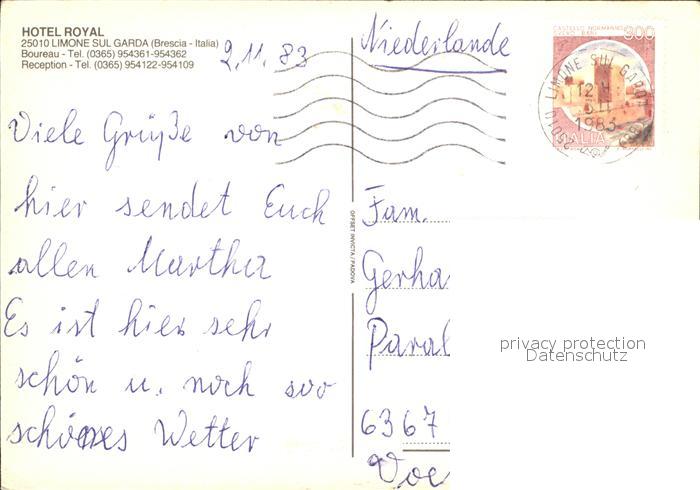 HOTEL ROYAL
25010 LIMONE SUL GARDA (Brescia - Italia)
Boureau - Tel. (0365) 954361-954362
Reception - Tel. (0365) 954122-954109
2.11.83
Viele Grüße von
hier sendet Euch
allen Martha
Es ist hier sehr
schön u. noch soo
schönes Wetter
OFFSET INVICTA / PADOVA
Niederlande
CASTELLO NORMANNO
SVEVO BARI
300
ITALIA
LIMONE SUL GARDA
12 H
1983
25010
Fam.
Gerha
Paral
6367
Voe
privacy protection
Datenschutz